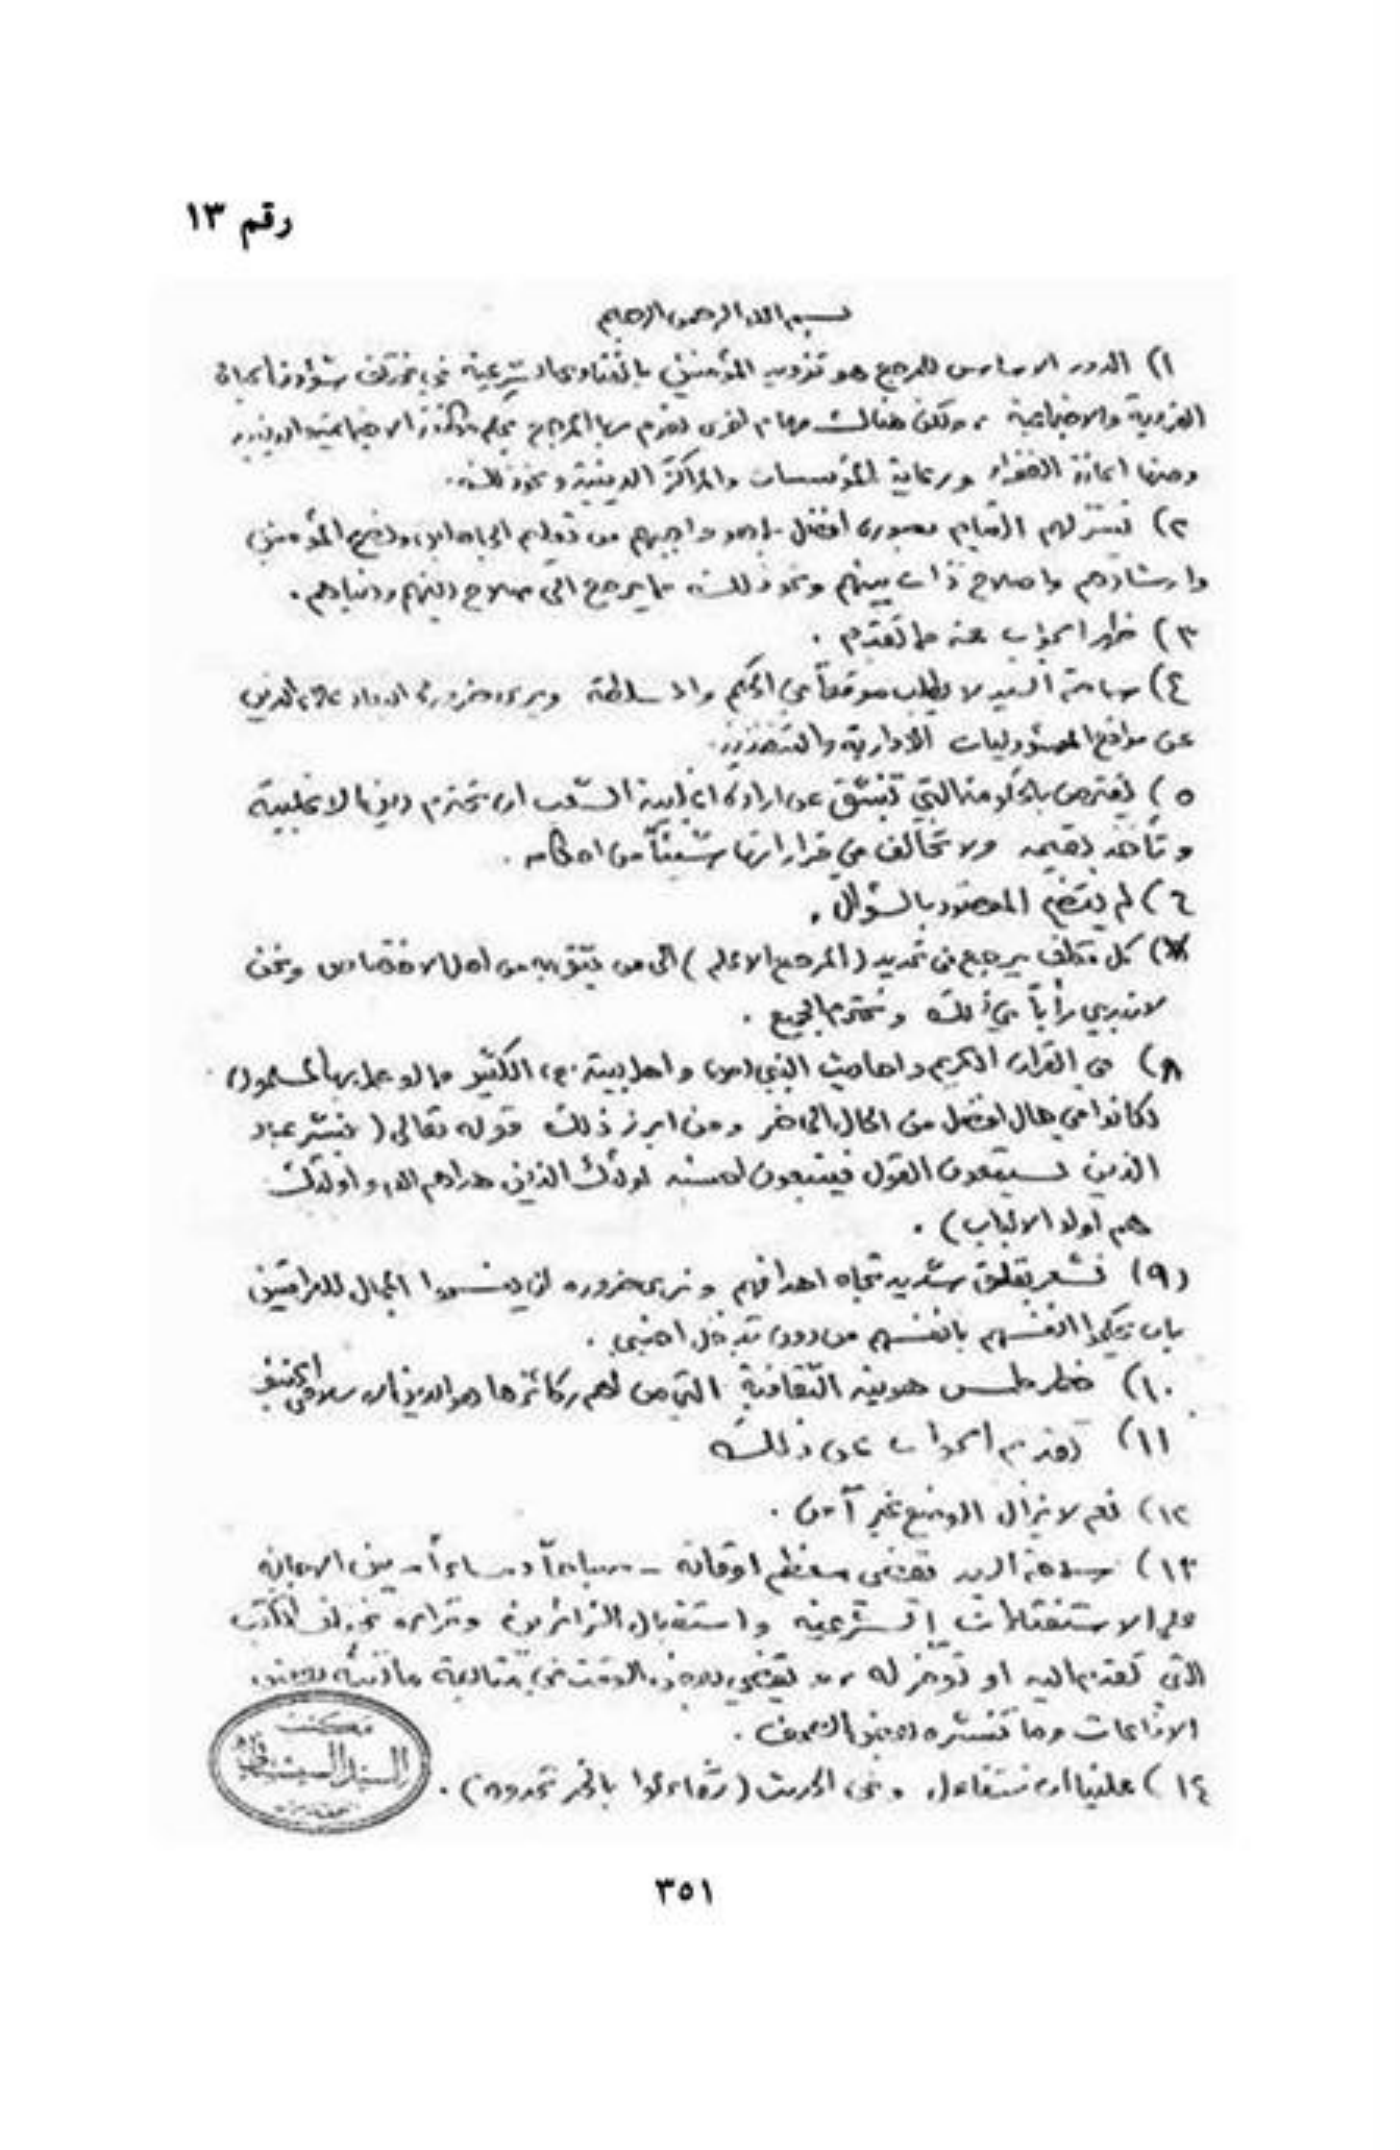 رقم ١٣
بسم الله الرحمن الرحيم
١) الدور الاساس للمرجع هو تزويد المؤمنين بالفتاوى الشرعية في مختلف شؤون الحياة
الفردية والاجتماعية ، ولكن هناك مهام اخرى يقوم بها المرجع بحكم مكانته الاجتماعية والدينية
ومنها اعانة الفقراء ورعاية المؤسسات والمراكز الدينية ونحو ذلك .
٢) تيسّر لهم القيام بصورة افضل بما هو واجبهم من تعليم الجاهلين ونصح المؤمنين
وارشادهم واصلاح ذات بينهم ونحو ذلك مما يرجع الى صلاح دينهم ودنياهم .
٣) ظهر الجواب عنه مما تقدم .
٤) سماحة السيد لا يطلب موقعاً في الحكم والسلطة ويرى ضرورة ابتعاد علماء الدين
عن مواقع المسؤوليات الادارية والتنفيذية .
٥) يفترض بالحكومة التي تنبثق عن ارادة اغلبية الشعب ان تحترم دين الاغلبية
وتأخذ بقيمه ولا تخالف في قراراتها شيئاً من احكامه .
٦) لم يتضح المقصود بالسؤال .
٧) كل مكلف يرجع في تحديد (المرجع الاعلم) الى من يثق به من اهل الاختصاص ونحن
لا نبدي رأياً في ذلك ونحترم الجميع .
٨) في القرآن الكريم واحاديث النبي (ص) واهل بيته (ع) الكثير مما لو عمل بها المسلمون
لكانوا في حال افضل من الحال الحاضر ومن ابرز ذلك قوله تعالى (فبشر عباد
الذين يستمعون القول فيتبعون احسنه اولئك الذين هداهم الله واولئك
هم اولوا الالباب) .
(٩) نشعر بقلق شديد تجاه اهدافهم ونرى ضرورة ان يفسحوا المجال للعراقيين
بان يحكموا انفسهم بانفسهم من دون تدخل اجنبي .
١٠) خطر طمس هويته الثقافية التي من اهم ركائزها هو الدين الاسلامي الحنيف
١١) تقدم الجواب على ذلك
١٢) نعم لا يزال الوضع غير آمن .
١٣) سماحة السيد يقضي معظم اوقاته - صباحاً ومساءاً - بين الاجابة
على الاستفتاءات الشرعية واستقبال الزائرين وقراءة مختلف الكتب
التي تقدم اليه او توفر له ، وقد يقضي بعض الوقت في متابعة ما تبثه بعض
الاذاعات وما تنشره بعض الصحف .
١٤) علينا ان نتفاءل وفي الحديث (تفاءلوا بالخير تجدوه) .
مكتب
السيد السيستاني
٣٥١